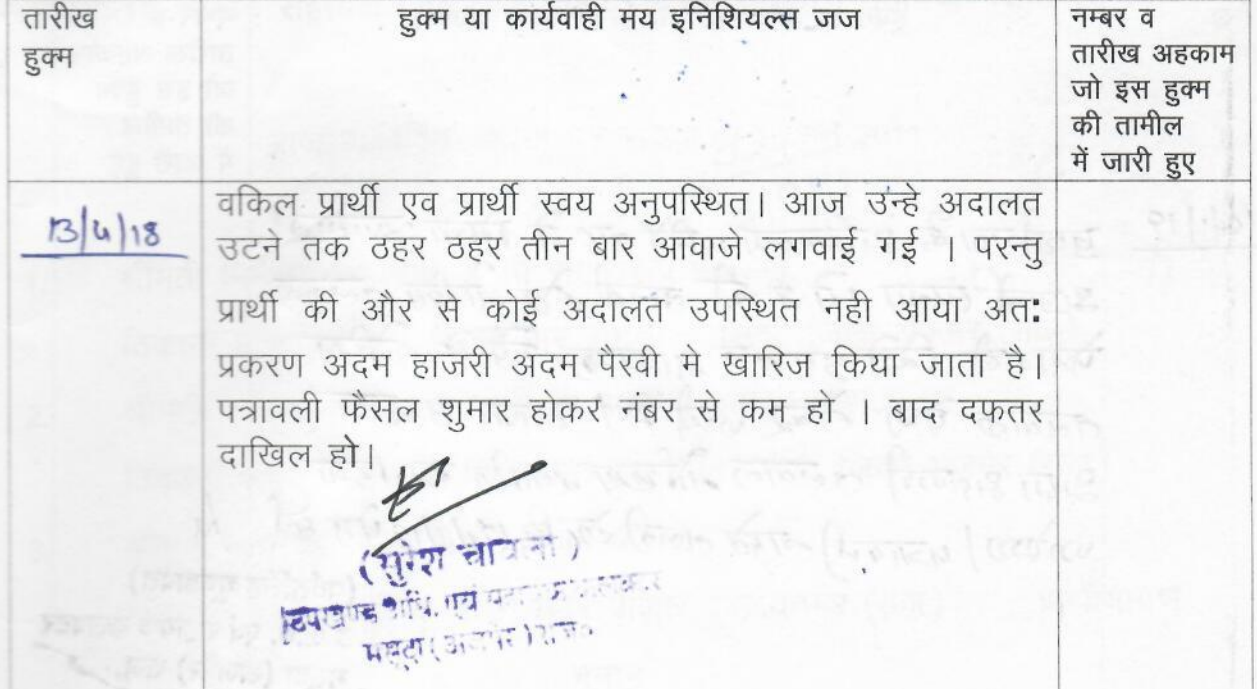 तारीख
हुक्म
हुक्म या कार्यवाही मय इनिशियल्स जज
नम्बर व
तारीख अहकाम
जो इस हुक्म
की तामील
में जारी हुए
13/4/18
वकिल प्रार्थी एव प्रार्थी स्वय अनुपस्थित। आज उन्हे अदालत
उटने तक ठहर ठहर तीन बार आवाजे लगवाई गई । परन्तु
प्रार्थी की और से कोई अदालत उपस्थित नही आया अत:
प्रकरण अदम हाजरी अदम पैरवी मे खारिज किया जाता है।
पत्रावली फैसल शुमार होकर नंबर से कम हो । बाद दफतर
दाखिल हो।
(सुरेश चावला)
उपखण्ड अधि. एवं
मसूदा (अजमेर) राज०